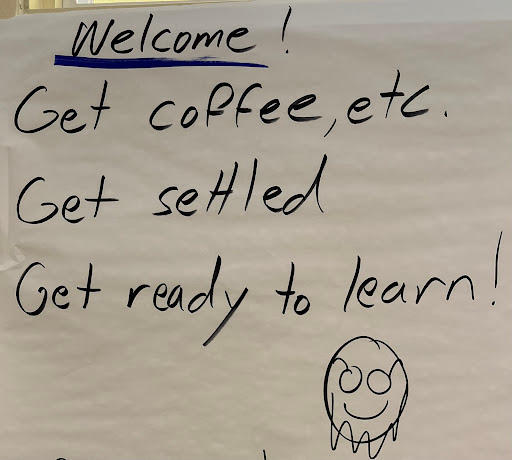 Welcome!
Get coffee, etc.
Get settled
Get ready to learn!